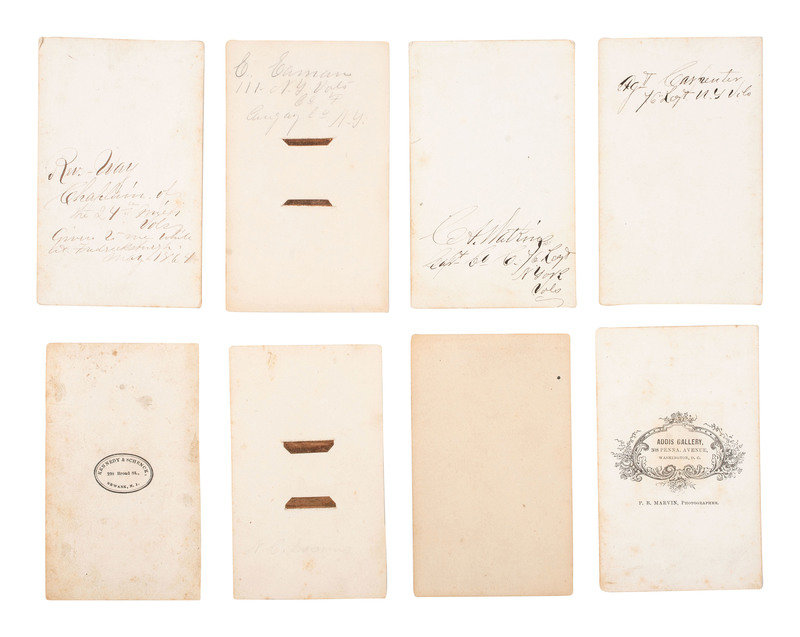 Rev. Way
Chaplain of
the 24th Mich
Vols
Given to me while
at Fredericksburg
May 1864
C. Eaman
111. N.Y. Vols
Co
Cayay Co N.Y.
C A Watkins
Capt Co C. 76 Regt
N York
Vols
Agt Carpenter,
76 Regt N Y Vols
KENNEDY & SCHENCK,
Broad St.,
NEWARK, N. J.
ADDIS GALLERY,
308 PENNA. AVENUE,
WASHINGTON, D. C.
P. B. MARVIN, PHOTOGRAPHER.